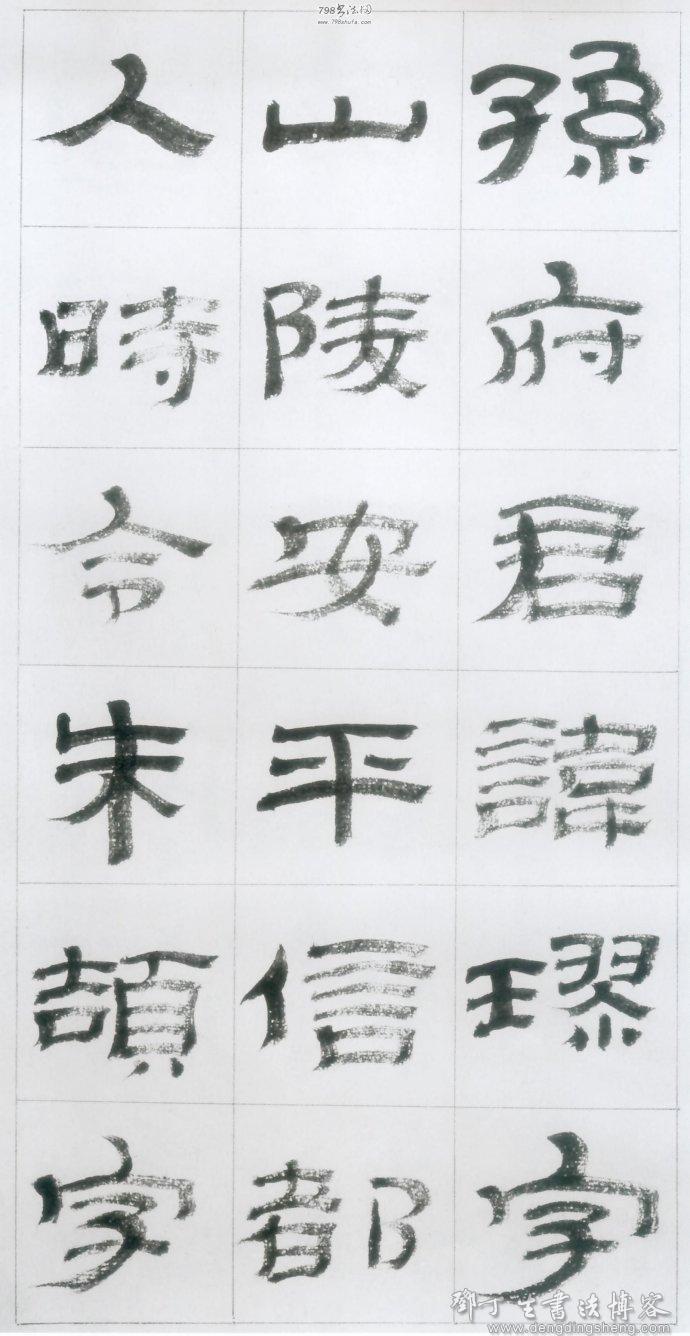 798书法网
www.798shufa.com
孫府君諱璆字
山陵安平信都
人時令朱頡字
鄧丁生書法博客
www.dengdingsheng.com